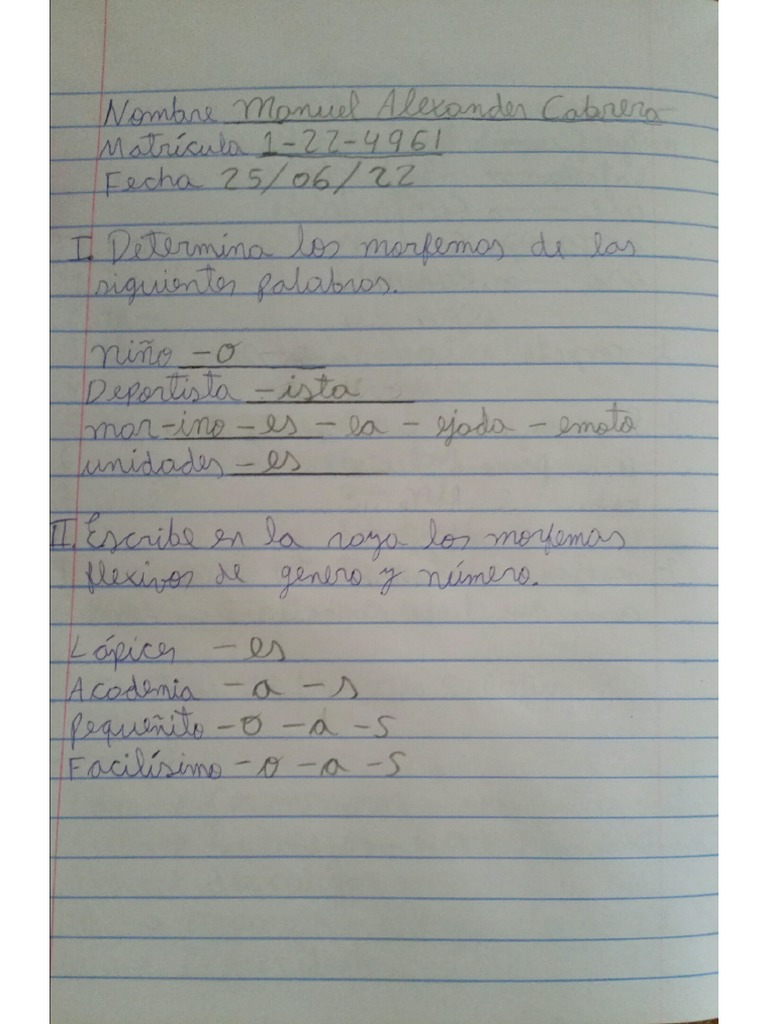 Nombre Manuel Alexander Cabrera
Matrícula 1-22-4961
Fecha 25/06/22
I. Determina los morfemas de las
siguientes palabras.
niño -o
Deportista -ista
mar-ino - es - ea - ejada - emoto
unidades - es
II. Escribe en la raya los morfemas
flexivos de genero y número.
Lápices - es
Academia - a - s
Pequeñito - o - a - s
Facilísimo - o - a - s